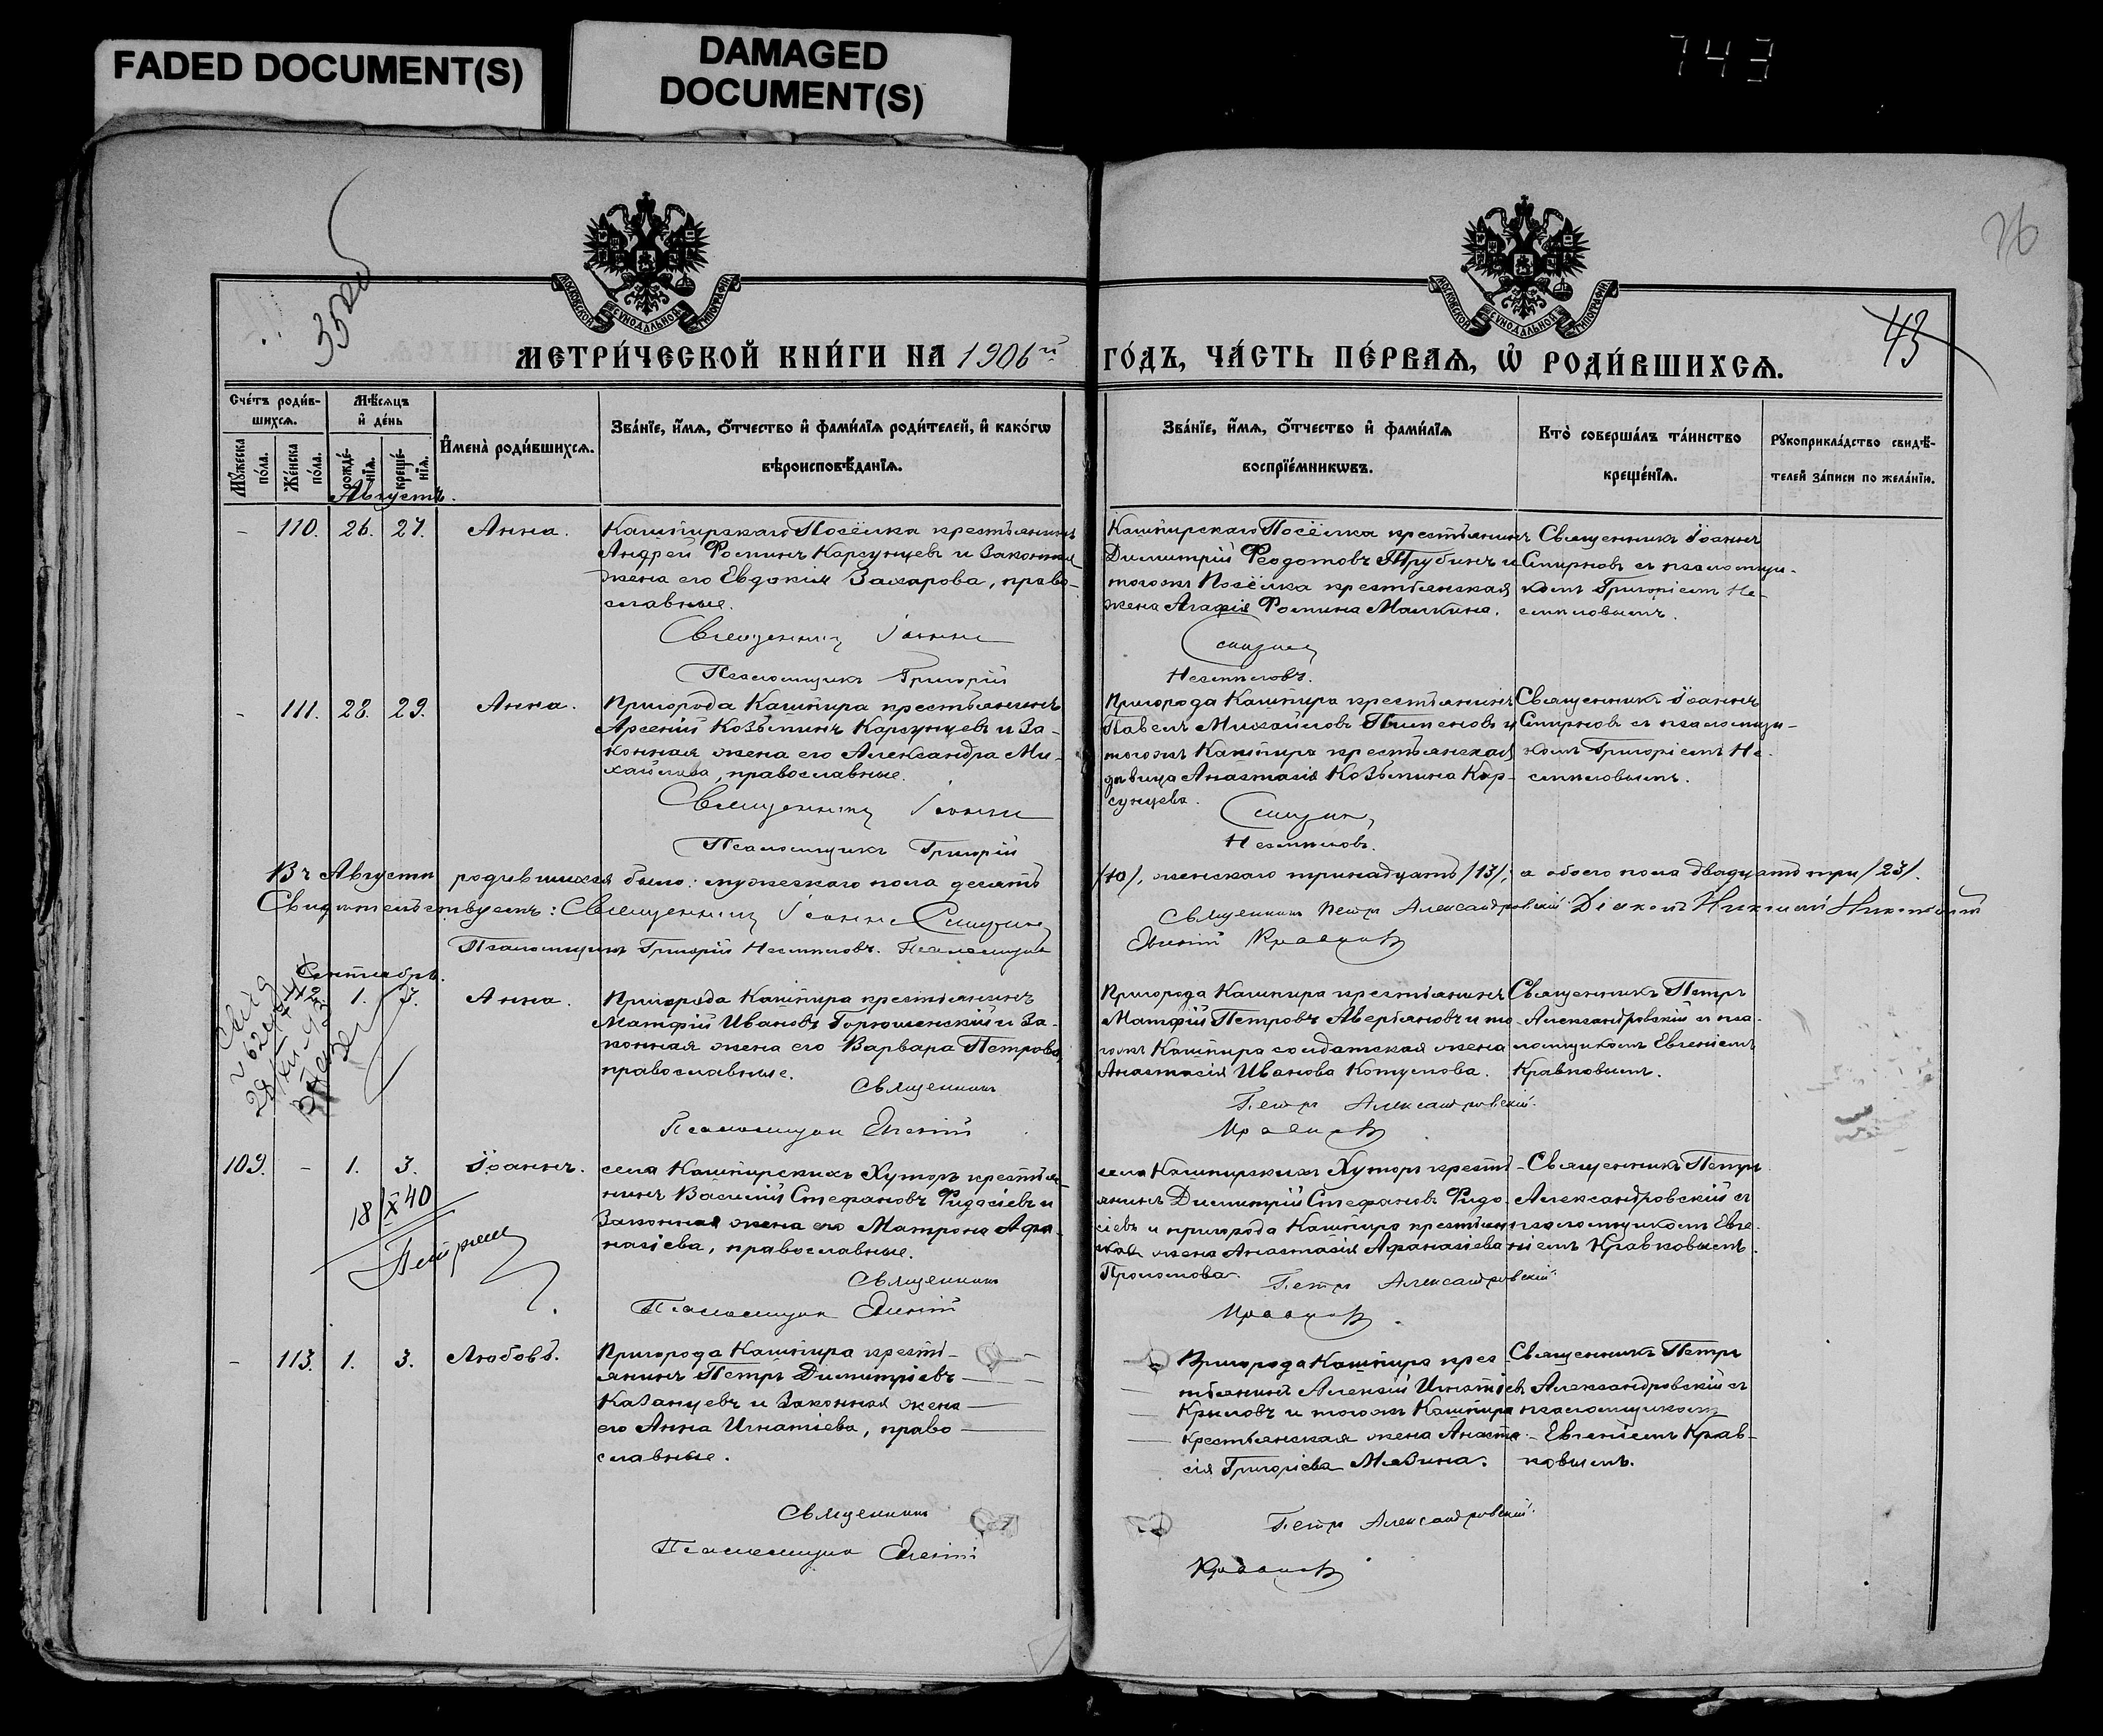 FADED DOCUMENT(S)
DAMAGED
DOCUMENT(S)
743
76
43
МОСКОВСКОЙ СѴНОДАЛЬНОЙ ТИПОГРАФІИ
МОСКОВСКОЙ СѴНОДАЛЬНОЙ ТИПОГРАФІИ
МЕТРИ́ЧЕСКОЙ КНИ́ГИ НА 1906й ГО́ДЪ, ЧА́СТЬ ПЕ́РВАѦ, Ѽ РОДИ́ВШИХСѦ.
Сче́тъ роди́в-
шихсѧ.
Мꙋ́жеска по́ла.
Же́нска по́ла.
Мѣ́сѧцъ
и҆ де́нь
рожде́-
нїѧ.
креще́-
нїѧ.
И҆мена̀ роди́вшихсѧ.
Зва́нїе, и҆́мѧ, ѻ҆́тчество и҆ фами́лїѧ роди́телей, и҆ како́гѡ
вѣроисповѣ́данїѧ.
Зва́нїе, и҆́мѧ, ѻ҆́тчество и҆ фами́лїѧ
воспрїе́мникѡвъ.
Кто̀ соверша́лъ та́инство
креще́нїѧ.
Рꙋкоприкла́дство свидѣ́-
телей за́писи по жела́нїю.
Августъ.
- 110. 26. 27. Анна.
Кашпирскаго Посёлка крестьянинъ
Андрей Ѳоминъ Карсунцевъ и законная
жена его Евдокія Захарова, право-
славные.
Священникъ Іоаннъ
Псаломщикъ Григорій
Кашпирскаго Посёлка крестьянинъ
Димитрій Ѳеодотовъ Трубинъ и
тогожъ Посёлка крестьянская
жена Агафія Ѳомина Малкина.
Смирновъ
Несмѣловъ.
Священникъ Іоаннъ
Смирновъ съ псаломщи-
комъ Григоріемъ Не-
смѣловымъ.
- 111. 28. 29. Анна.
Пригорода Кашпира крестьянинъ
Арсеній Козьминъ Карсунцевъ и за-
конная жена его Александра Ми-
хайлова, православные.
Священникъ Іоаннъ
Псаломщикъ Григорій
Пригорода Кашпира крестьянинъ
Павелъ Михайловъ Пименовъ и
тогожъ Кашпира крестьянская
дѣвица Анастасія Козьмина Кар-
сунцева.
Смирновъ
Несмѣловъ.
Священникъ Іоаннъ
Смирновъ съ псаломщи-
комъ Григоріемъ Не-
смѣловымъ.
Въ Августѣ родившихся было: мужескаго пола десять /10/, женскаго тринадцать /13/; а обоего пола двадцать три /23/.
Свидѣтельствуемъ: Священникъ Іоаннъ Смирновъ
Священникъ Петръ Александровскій. Діаконъ
Псаломщикъ Григорій Несмѣловъ. Псаломщикъ
Евгеній Кравковъ
Сентябрь.
1. 3. Анна.
Пригорода Кашпира крестьянинъ
Матѳій Ивановъ Горюшенскій и за-
конная жена его Варвара Петрова,
православные.
Священникъ
Псаломщикъ Евгеній
Пригорода Кашпира крестьянинъ
Матѳій Петровъ Аверьяновъ и то-
гожъ Кашпира солдатская жена
Анастасія Иванова Котунова.
Петръ Александровскій.
Кравковъ
Священникъ Петръ
Александровскій съ пса-
ломщикомъ Евгеніемъ
Кравковымъ.
109. - 1. 3. Іоаннъ.
18/X 40
села Кашпирскихъ Хуторъ крестья-
нинъ Василій Стефановъ Ѳидосіевъ и
законная жена его Матрона Аѳа-
насіева, православные.
Священникъ
Псаломщикъ Евгеній
села Кашпирскихъ Хуторъ кресть-
янинъ Димитрій Стефановъ Ѳидо-
сіевъ и пригорода Кашпира крестьян-
ская жена Анастасія Аѳанасіева
Проломова.
Петръ Александровскій.
Кравковъ
Священникъ Петръ
Александровскій съ
псаломщикомъ Евге-
ніемъ Кравковымъ.
- 113. 1. 3. Любовь.
Пригорода Кашпира кресть-
янинъ Петръ Димитріевъ
Казанцевъ и законная жена
его Анна Игнатіева, право-
славные.
Священникъ
Псаломщикъ Евгеній
Пригорода Кашпира крес-
тьянинъ Алексій Игнатіевъ
Крыловъ и тогожъ Кашпира
крестьянская жена Анаста-
сія Григоріева Мазина.
Петръ Александровскій.
Кравковъ
Священникъ Петръ
Александровскій съ
псаломщикомъ
Евгеніемъ Крав-
ковымъ.